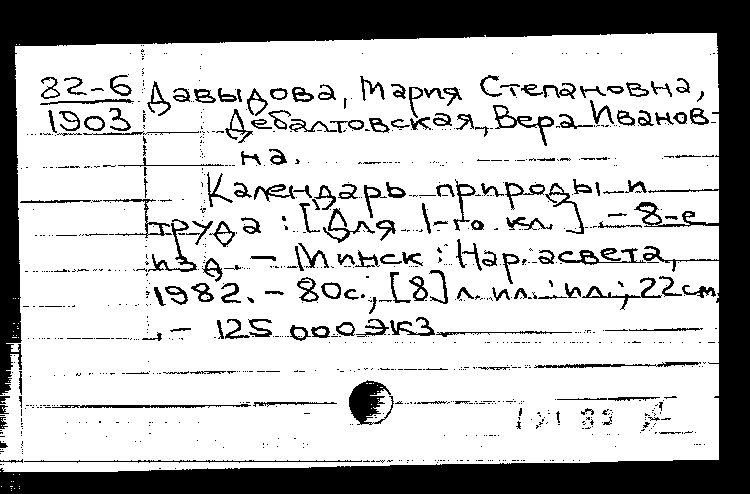 82-6 Давыдова, Мария Степановна,
1903 Дебалтовская, Вера Иванов-
на.
Календарь природы и
труда : [Для 1-го кл.]. - 8-е
изд. - Минск : Нар. асвета,
1982. - 80 с., [8] л. ил. : ил.; 22 см
. - 125 000 экз.